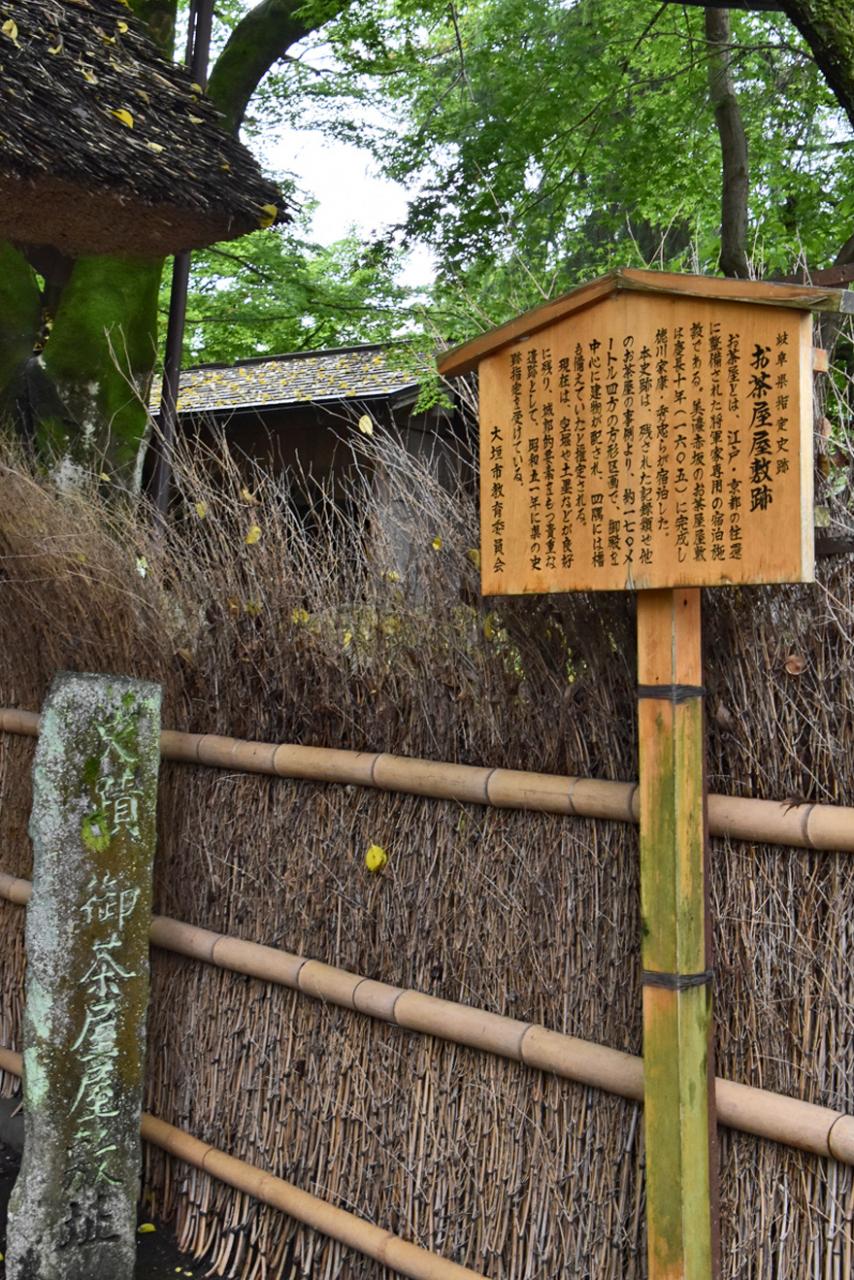 岐阜県指定史跡
お茶屋屋敷跡
お茶屋とは、江戸・京都の往還
に整備された将軍家専用の宿泊施
設である。美濃赤坂のお茶屋屋敷
は慶長十年(一六〇五)に完成し
徳川家康・秀忠らが宿泊した。
本史跡は、残された記録類や他
のお茶屋の事例より、約一七〇メ
ートル四方の方形区画で、御殿を
中心に建物が配され、四隅には櫓
も備えていたと推定される。
現在は、空堀や土塁などが良好
に残り、城郭的要素をもつ貴重な
遺跡として、昭和五一年に県の史
跡指定を受けている。
大垣市教育委員会
史蹟 御茶屋屋敷址